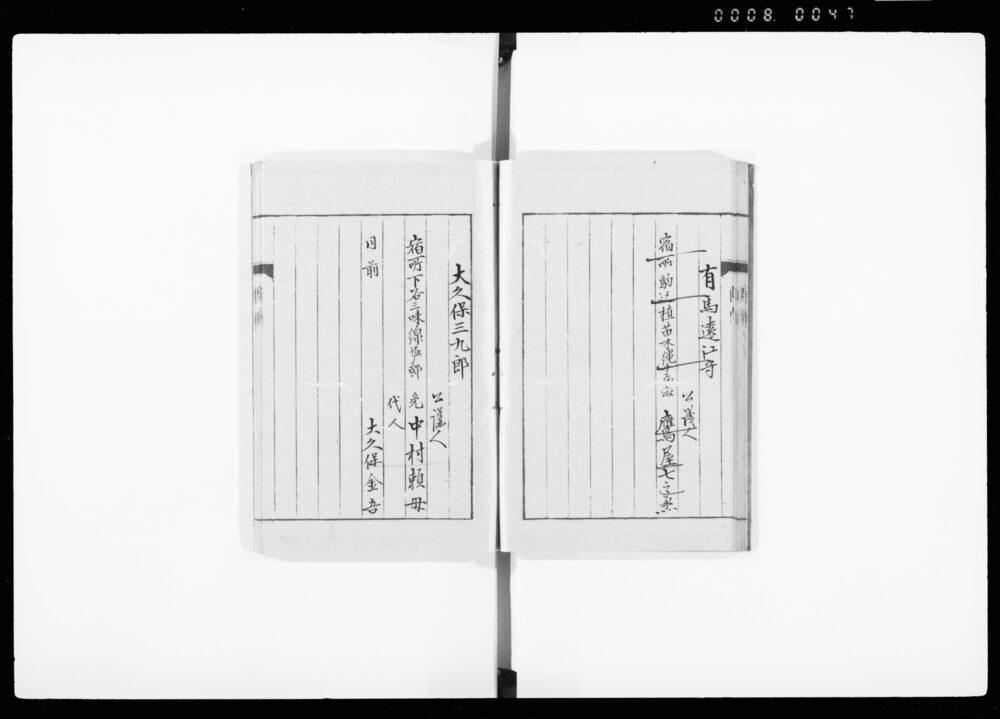 0008 0047
有馬遠江守
公議人
宿所駒込植苗木縄手 鷹屋七之丞
大久保三九郎
公議人
宿所下谷三味線堀邸 免 中村頼母
代人
同前 大久保金吾